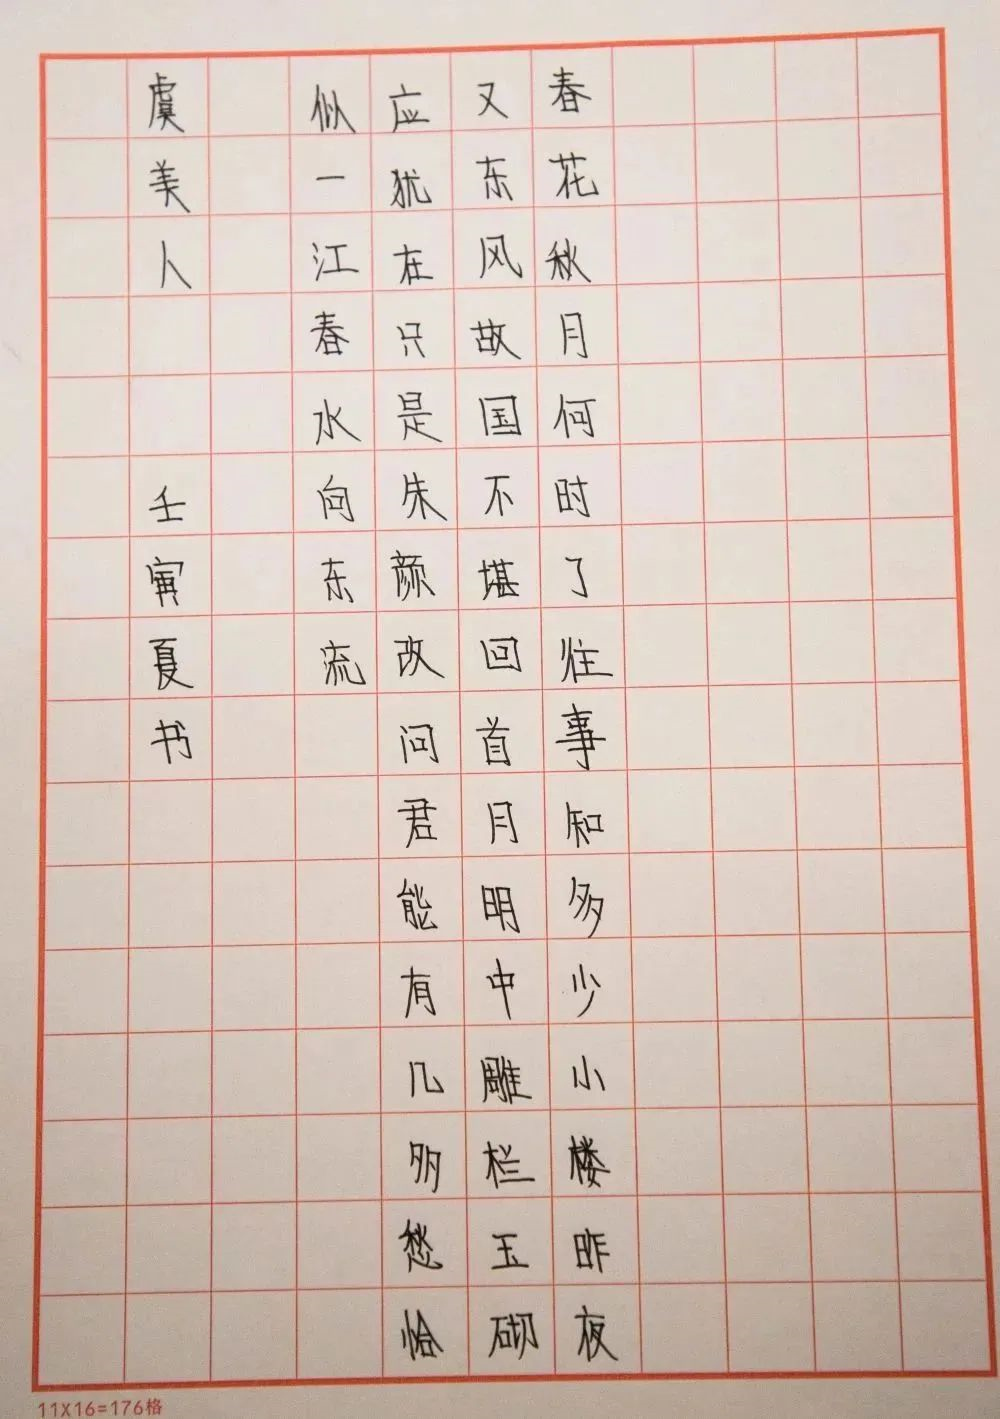 春花秋月何时了往事知多少小楼昨夜
又东风故国不堪回首月明中雕栏玉砌
应犹在只是朱颜改问君能有几多愁恰
似一江春水向东流
虞美人 壬寅夏书
11X16=176格